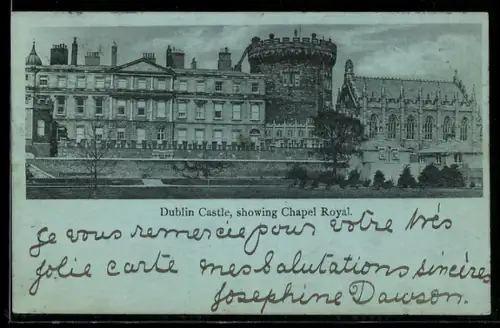 Dublin Castle, showing Chapel Royal.
Je vous remerciepour votre très
jolie carte mes Salutations sincères
Josephine Dawson.